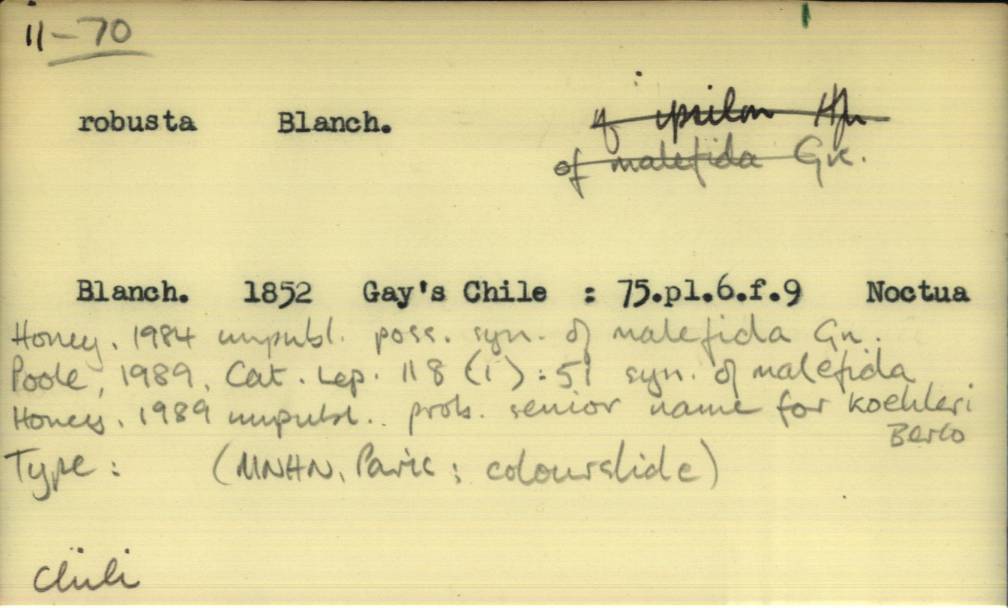 11-70
robusta Blanch. of ipsilon Hfn
of malefida Gn.
Blanch. 1852 Gay's Chile : 75.pl.6.f.9 Noctua
Honey. 1984 unpubl. poss. syn. of malefida Gn.
Poole, 1989. Cat. Lep. 118 (1): 51 syn. of malefida
Honey. 1989 unpubl.. prob. senior name for koehleri
Berio
Type: (MNHN, Paris; colourslide)
Chili